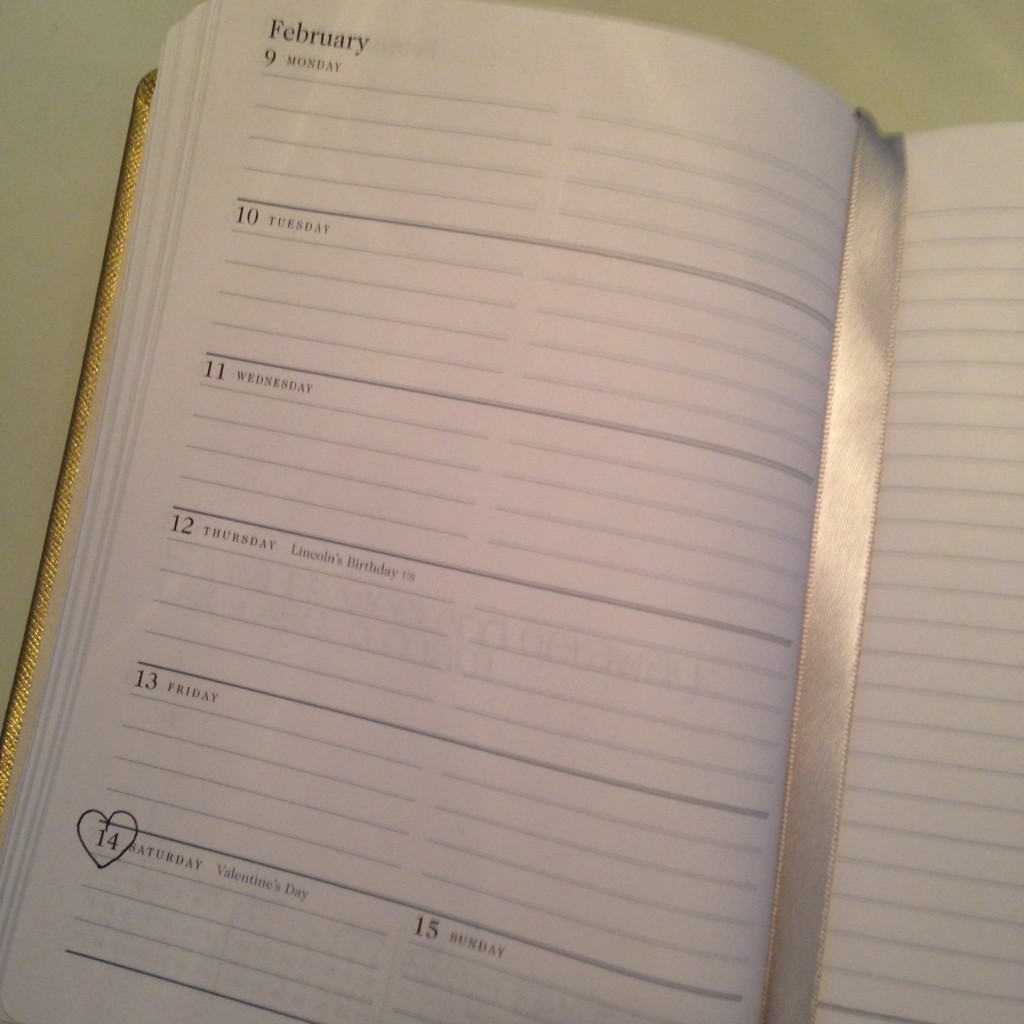 February
9 MONDAY
10 TUESDAY
11 WEDNESDAY
12 THURSDAY Lincoln's Birthday US
13 FRIDAY
14 SATURDAY Valentine's Day
15 SUNDAY